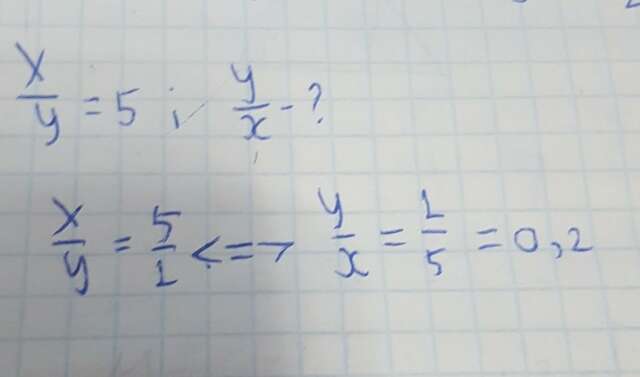 x/y = 5 ; y/x - ?
x/y = 5/1 <=> y/x = 1/5 = 0,2